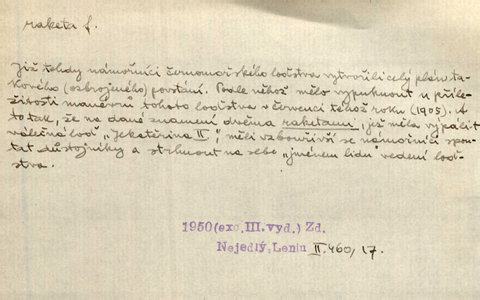 raketa f.
Již tehdy námořníci černomořského loďstva vytvořili celý plán ta-
kového (ozbrojeného) povstání. Podle něhož mělo vypuknout u příle-
žitosti manévrů tohoto loďstva v červenci téhož roku (1905). A
to tak, že na dané znamení dvěma raketami, jež měla vypálit
válečná loď „Jekatěrina II", měli vzbouřivší se námořníci spou-
tat důstojníky a strhnout na sebe „jménem lidu" vedení loď-
stva.
1950 (exc.III.vyd.) Zd.
Nejedlý, Lenin II. 460, 17.